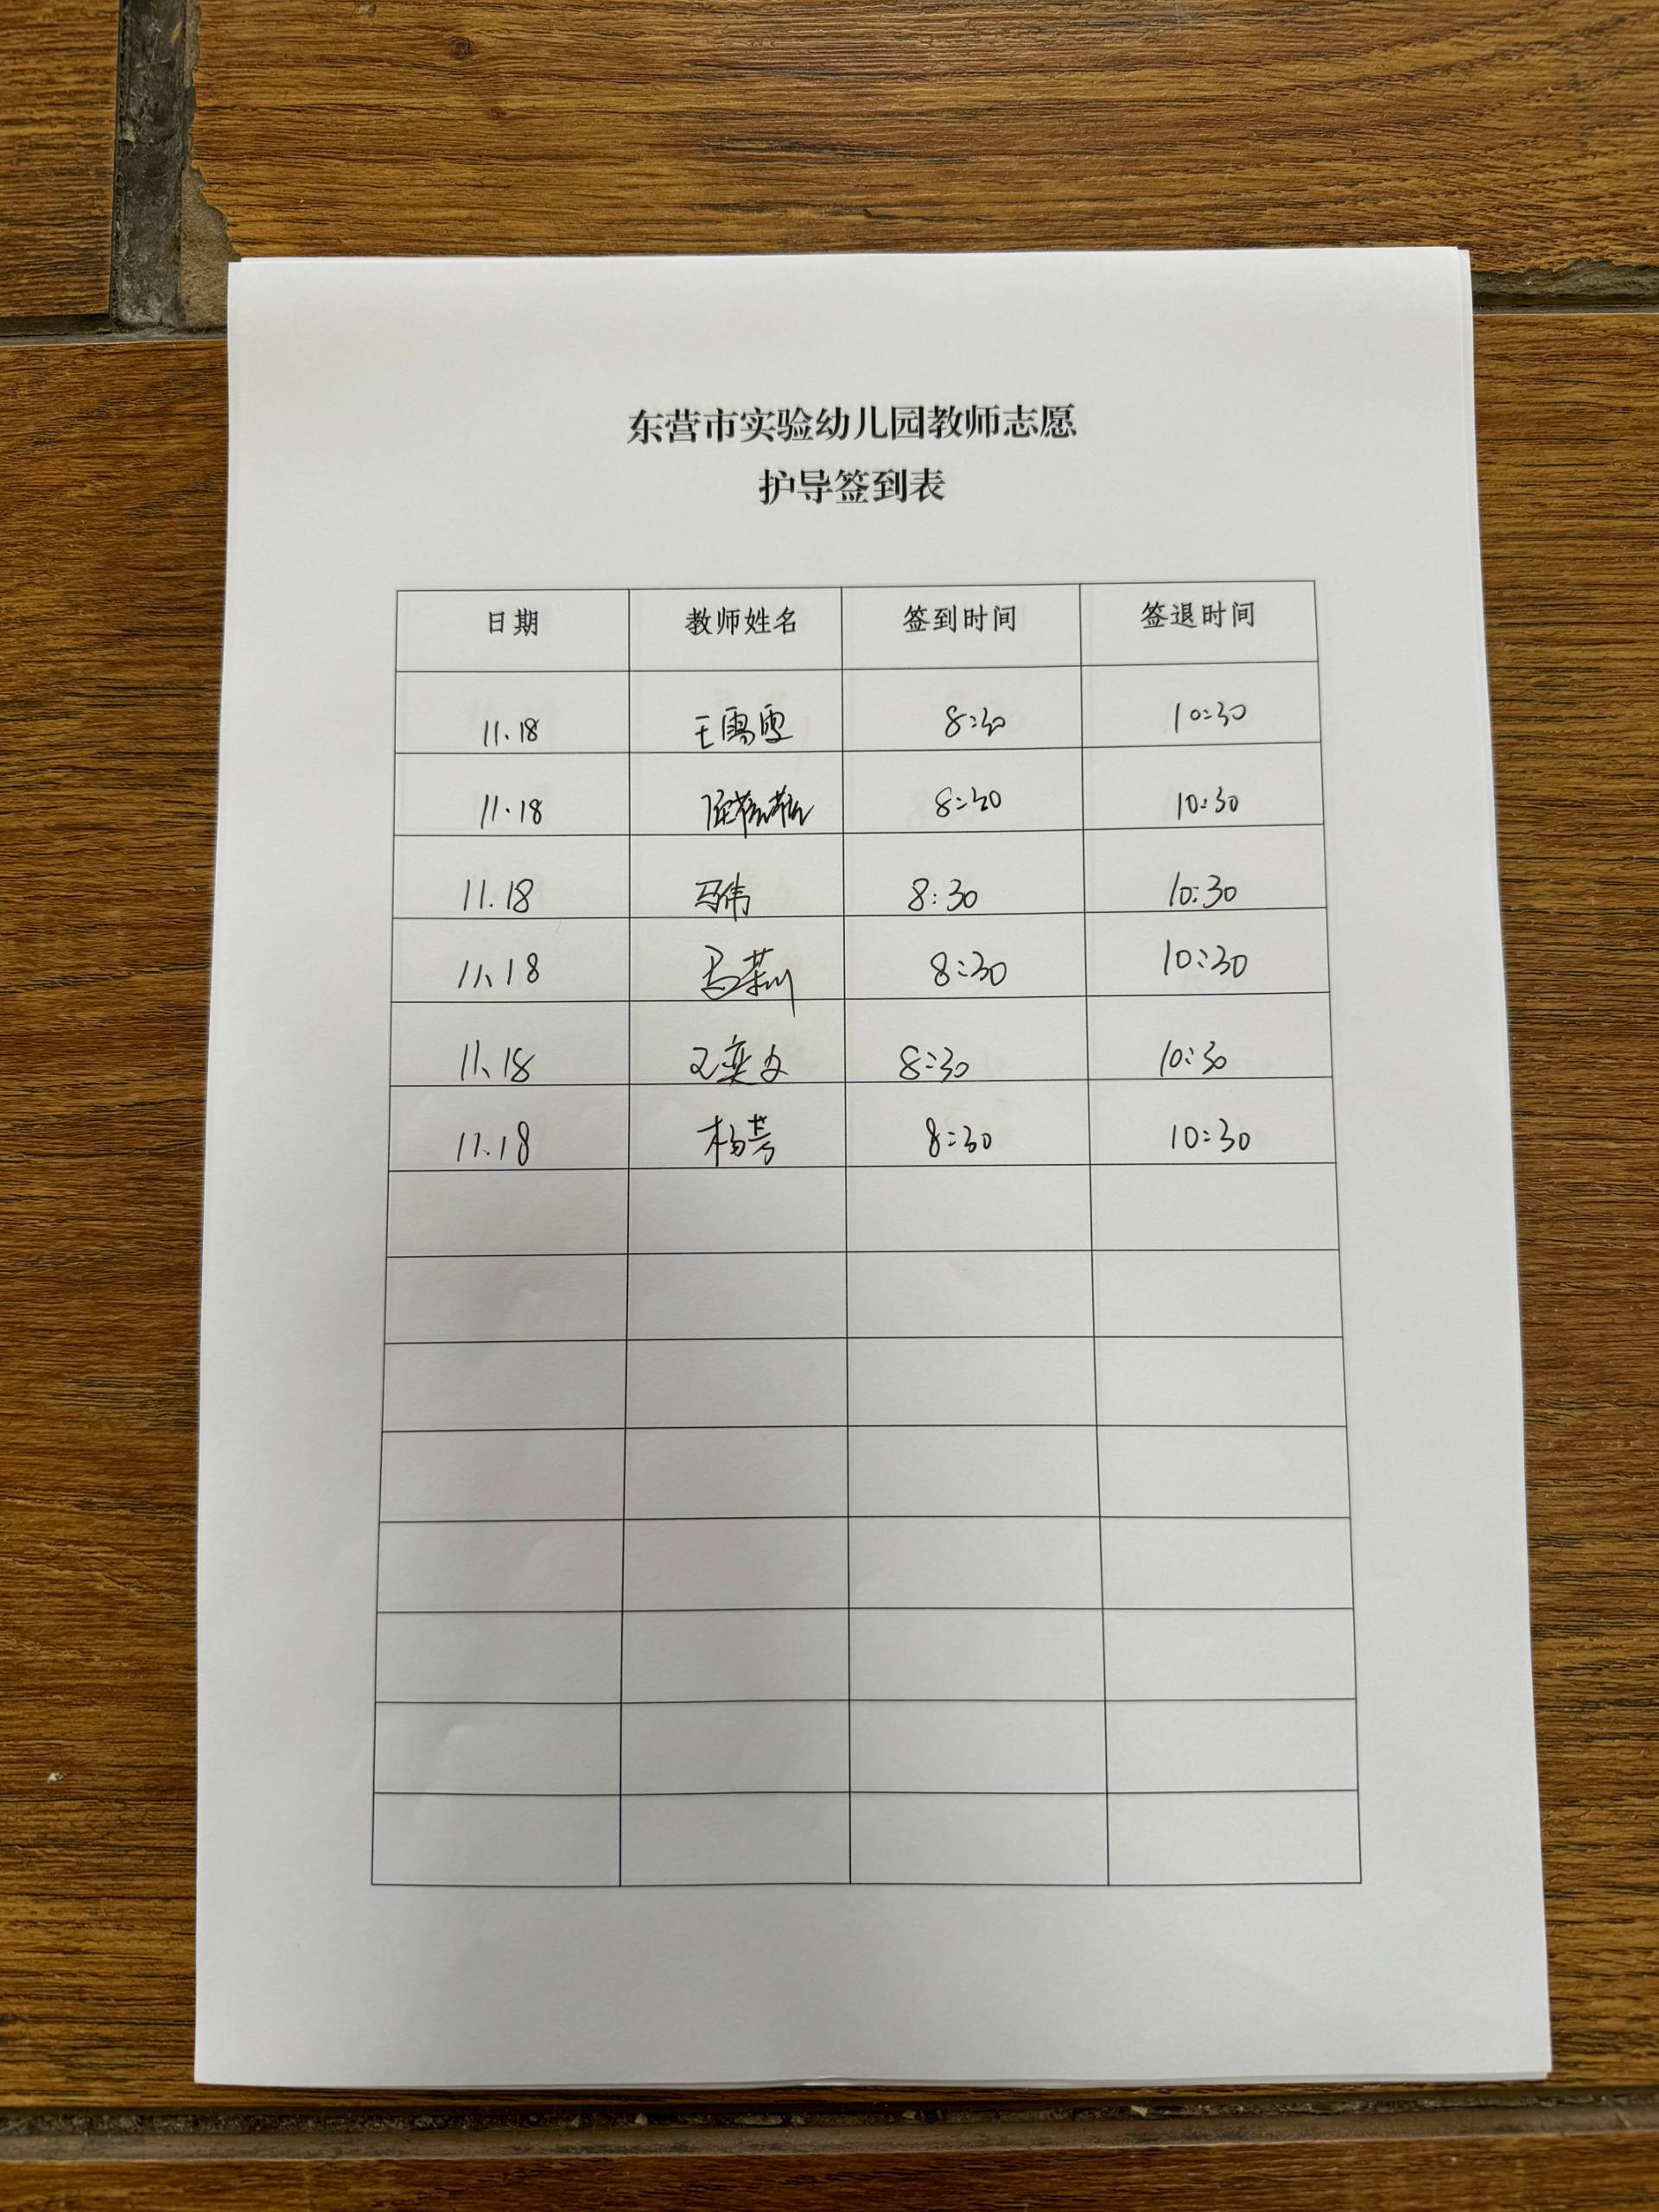 东营市实验幼儿园教师志愿
护导签到表
日期 教师姓名 签到时间 签退时间
11.18 8:30 10:30
11.18 8:30 10:30
11.18 马伟 8:30 10:30
11.18 8:30 10:30
11.18 8:30 10:30
11.18 杨芳 8:30 10:30